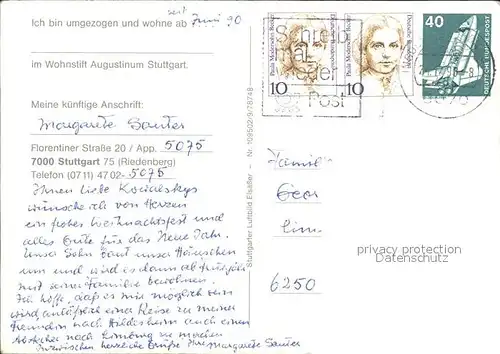 seit
Ich bin umgezogen und wohne ab Juni 90
im Wohnstift Augustinum Stuttgart.
Meine künftige Anschrift:
Margarete Sauter
Florentiner Straße 20 / App. 5075
7000 Stuttgart 75 (Riedenberg)
Telefon (0711) 4702- 5075
Ihnen liebe Kowalskys
wünsche ich von Herzen
ein frohes Weihnachtsfest und
alles Gute für das Neue Jahr.
Unser Sohn baut unser Häuschen
um und wird es dann ab Frühjahr
mit seiner Familie bewohnen.
Ich hoffe, daß es mir möglich sein
wird anläßlich einer Reise zu meiner
Freundin nach Hildesheim auch einen
Abstecher nach Limburg zu machen
Inzwischen herzliche Grüße Ihre Margarete Sauter
Stuttgarter Luftbild Elsäßer - Nr. 109502-9/78748
Schreib
mal
wieder
Post
Paula Modersohn-Becker
Deutsche Bundespost
10
Paula Modersohn-Becker
Deutsche Bundespost
10
40
DEUTSCHE BUNDESPOST
Familie
Geor
Lim
6250
privacy protection
Datenschutz